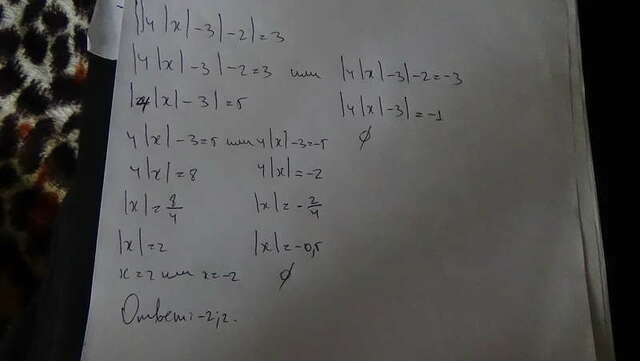 ||4|x|-3|-2|=3
|4|x|-3|-2=3 или |4|x|-3|-2=-3
|4|x|-3|=5 |4|x|-3|=-1
4|x|-3=5 или 4|x|-3=-5 ∅
4|x|=8 4|x|=-2
|x|=8/4 |x|=-2/4
|x|=2 |x|=-0,5
x=2 или x=-2 ∅
Ответ: -2;2.